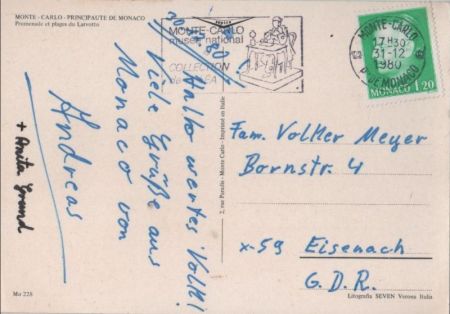 MONTE - CARLO - PRINCIPAUTE DE MONACO
Promenade et plages du Larvotto
30/12.80
Hallo wertes Volk!
Viele Grüße aus
Monaco von
Andreas
+ Anita Grund
MONTE-CARLO
musée national
COLLECTION
MONTE-CARLO
17 H30
31-12
1980
PTE DE MONACO
MONACO 1,20
2, rue Paradis - Monte Carlo - Imprimé en Italie
Fam. Volker Meyer
Bornstr. 4
x-59 Eisenach
G.D.R.
Mo 228
Litografia SEVEN Verona Italia